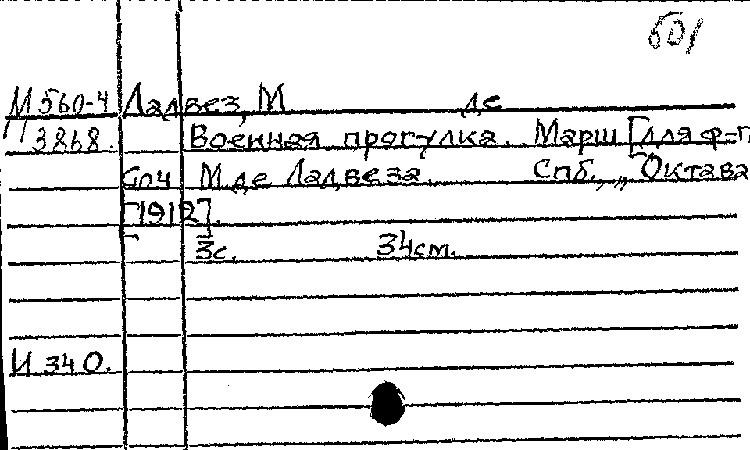 601
М 560-4 Ладвез, М де
11
3868. Военная прогулка. Марш [для ф-п
Соч М де Ладвеза. Спб., „Октава
[1912].
3с. 34см.
И 340.